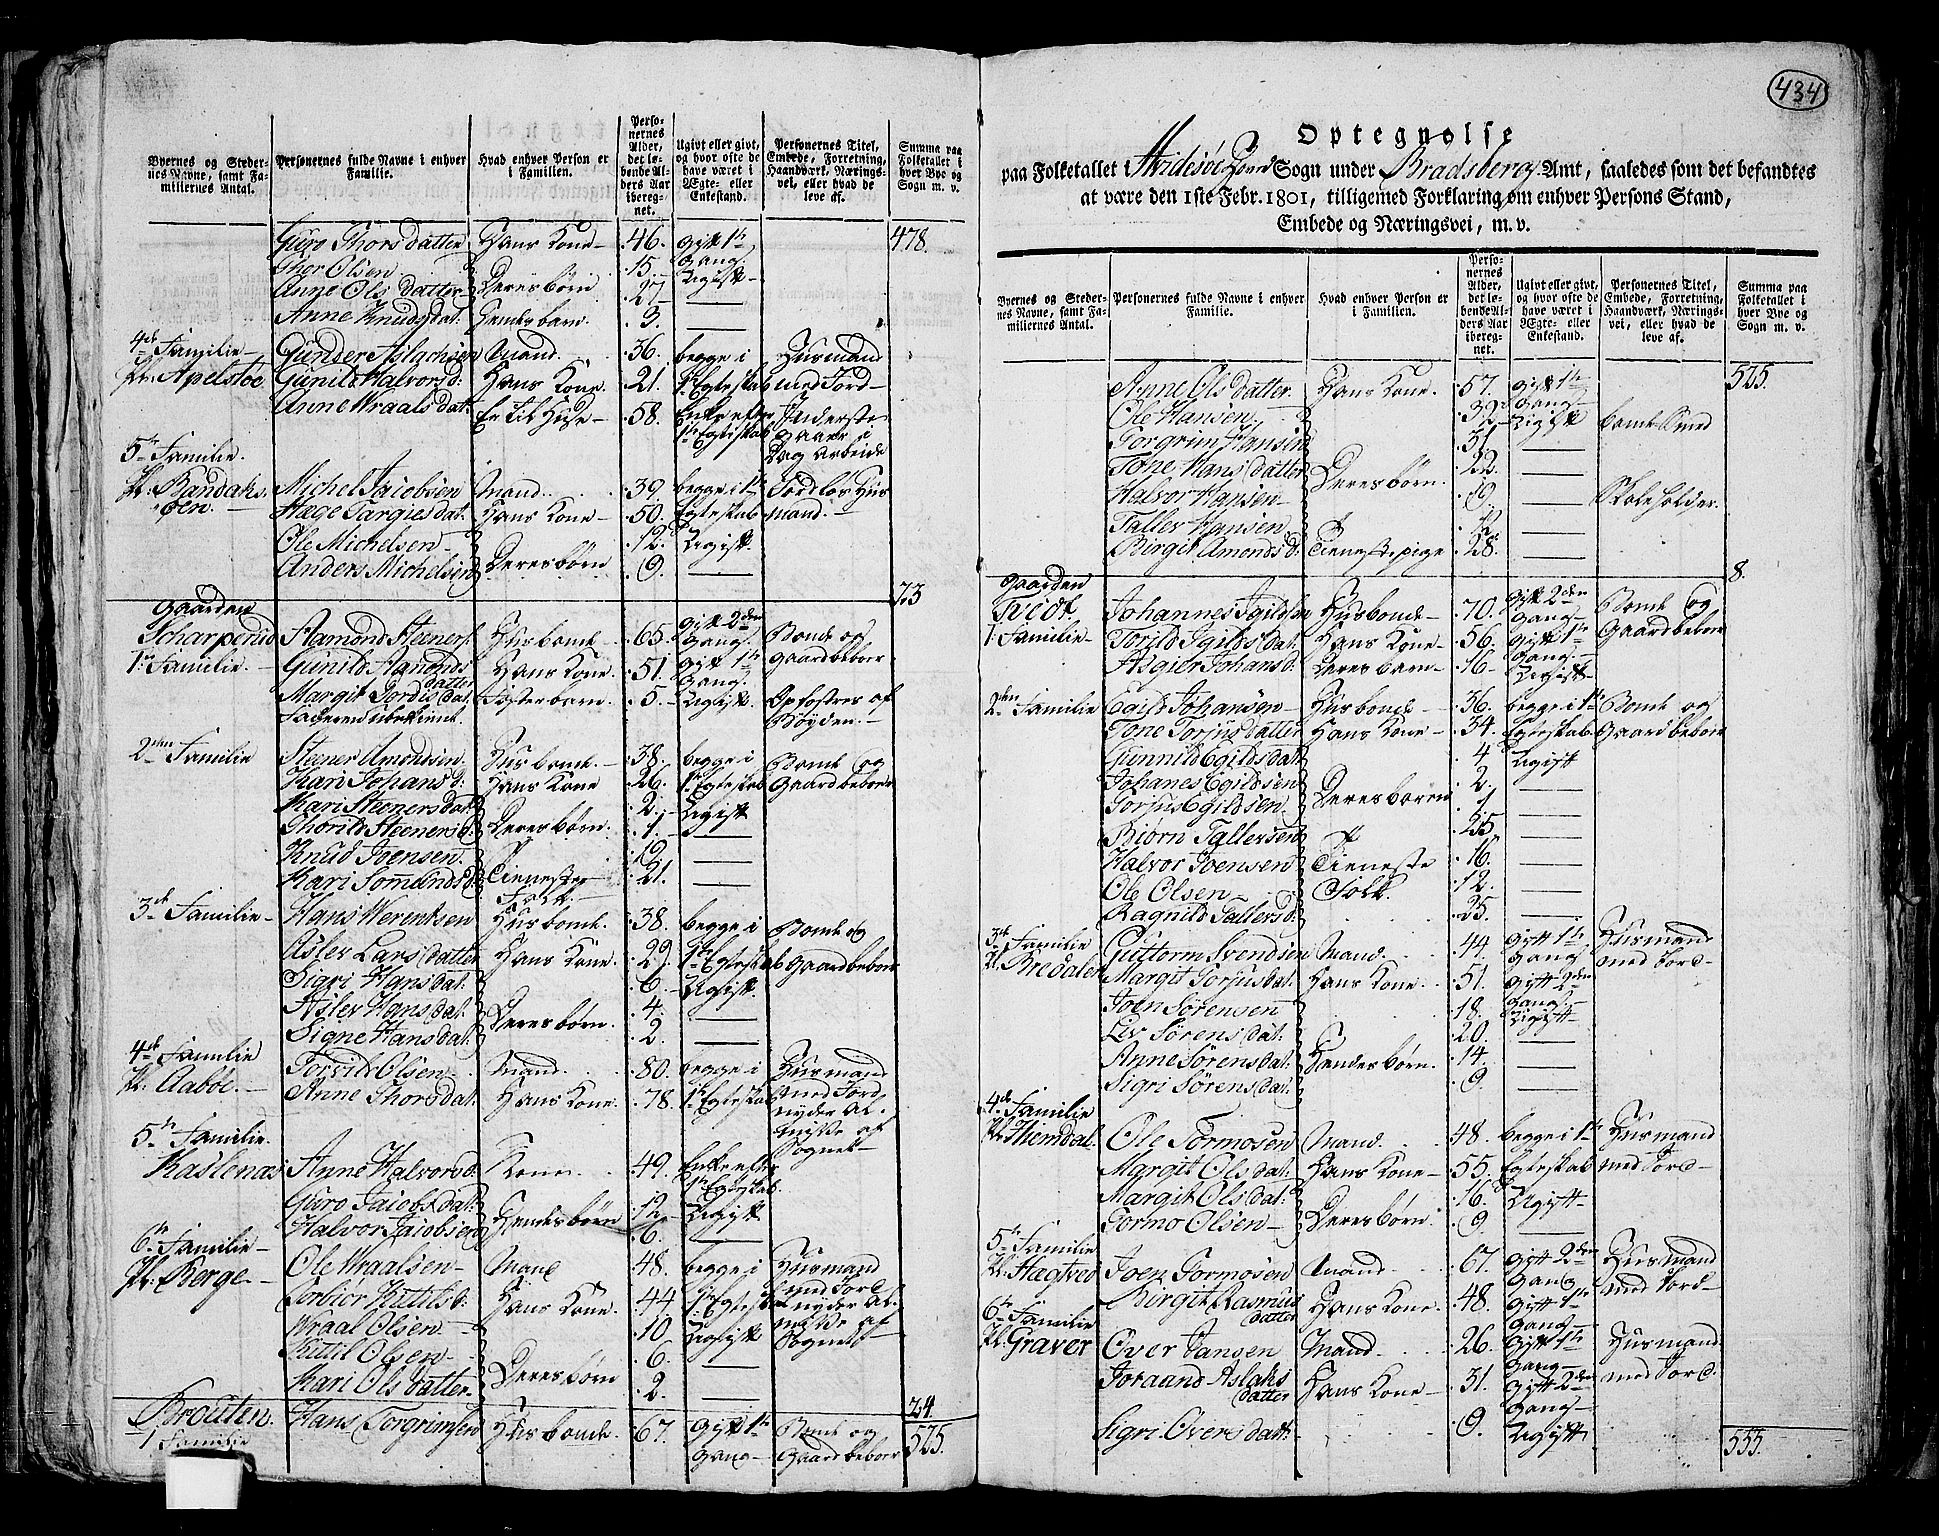 434
Byernes og Steder-
nes Navne, samt Fa-
miliernes Antal.
Personernes fulde Navne i enhver
Familie.
Hvad enhver Person er
i Familien.
Perso-
nernes
Alder,
det lø-
bende Al-
ders Aar
ibereg-
net.
Ugivt eller givt,
og hvor ofte de
have været i
Ægte- eller
Enkestand.
Personernes Titel,
Embede, Forretning,
Haandværk, Nærings-
vei, eller hvad de
leve af.
Summa paa
Folketallet i
hver Bye og
Sogn m. v.
Guro Thorsdatter Hans Kone 46. gift 1te Gang 478.
Olsen 15. Ugift
Anne Olsdatter Deres børn 27.
Anne Knudsdat. Hendes barn. 3.
4de Familie Gunder Aslachsen Mand 36. begge i Huusmand
Pl. Apelstøe Gunild Halvorsd: Hans Kone 21. 1te Egteskab med Jord
Anne Wraalsdat. 58. Enke efter 1te Egteskab
5te Familie.
Pl. Bandaks Michel Jacobsen Mand 39. begge i 1te Jordløs Huus
Hæge Targiesdat. Hans Kone 50. Egteskab mand.
Ole Michelsen 12. Ugift
Anders Michelsen Deres børn 9.
Gaarden
Scharperud Aamond Steeners. Husbonde 65. gift 2den Gang. Bonde og
1te Familie. Gunild Amonds datter Hans Kone. 51. gift 1te Gang. Gaardbeboer
Margit Tordisdat. Fosterbarn. 5. Ugift. Opfostres af
Faderen ubekient. Bøyden.
2den Familie Steener Amondsen. Husbonde. 38. begge i Bonde og
Kari Johansd. Hans Kone 26. 1te Egteskab Gaardbeboer
Kari Steenersdat. 2. Ugift
Thorild Steenersd. Deres børn. 1.
Knud Joensen. 19.
Kari Somundsd. Tieneste Folk 21.
3de Familie Hans Werentsen Husbonde. 38. begge i Bonde og
Asler Larsdatter Hans Kone. 29. 1te Egteskab Gaardbeboer
Sigri Hansdat. 6. Ugift.
Asler Hansdat. 4.
Signe Hansdat. Deres børn. 2.
4de Familie Torild Olsen Mand. 80. begge i Huusmand
Pl. Aabøe. Anne Thorsdat. Hans Kone. 78. 1te Egteskab med Jord
nyder Al-
misse af
Sognet
5te Familie.
Kaslenæs Anne Halvorsd. Kone 49. Enke efter 1te Egteskab
Guro Jacobsdat. 12. Ugift
Halvor Jacobsen Hendes børn 6.
6te Familie Ole Wraalsen Mand 48. begge i Huusmand
Pl. Berge Torbiør Kittilsd: Hans Kone. 44. 1te Egteskab med Jord
Wraal Olsen 10. Ugift nyder Al-
Kittil Olsen 6. misse af
Kari Olsdatter. Deres børn 2. Sognet
24.
Brouten. Hans Torgrimsen Husbonde. 67. gift 1te Bonde og 525.
1 Familie Gang Gaardbeboer
Optegnelse
paa Folketallet i Hvidesøe Sogn under Bradsberg Amt, saaledes som det befandtes
at være den 1ste Febr. 1801, tilligemed Forklaring om enhver Persons Stand,
Embede og Næringsvei, m. v.
Byernes og Steder-
nes Navne, samt Fa-
miliernes Antal.
Personernes fulde Navne i enhver
Familie.
Hvad enhver Person er
i Familien.
Perso-
nernes
Alder,
det lø-
bende Al-
ders Aar
ibereg-
net.
Ugivt eller givt,
og hvor ofte de
have været i
Ægte- eller
Enkestand.
Personernes Titel,
Embede, Forretning,
Haandværk, Nærings-
vei, eller hvad de
leve af.
Summa paa
Folketallet i
hver Bye og
Sogn m. v.
525.
Anne Olsdatter. Hans Kone. 57. gift 1te Gang
Ole Hansen. 39. Ugift
Torgrim Hansen 31.
Tone Hansdatter 22.
Halvor Hansen Deres børn. 19. Skoleholder.
Taller Hansen
Birgit Amondsd: Tienestepige 28.
8.
Gaarden
Tveidt Johannes Egildsen Husbonde 70. gift 2den Gang Bonde og
1 Familie Torild Egildsdat. Hans Kone 56. gift 1te Gang Gaardbeboer
Asgier Johansd. Deres barn 16. Ugift
2den Familie Egild Johansen Husbonde 36. begge i 1te Bonde og
Tone Torjusdatter Hans Kone 34. Egteskab Gaardbeboer
Gunnild Egildsdat. 4. Ugift
Johanes Egildsen 2.
Torjus Egildsen Deres børn 1.
Biørn Tallersen 25.
Halvor Joensen Tieneste 16.
Ole Olsen Folk. 12.
Ragnild Tallersd. 25.
3de Familie Guttorm Svendsen Mand. 44. gift 1te Gang Huusmand
Pl. Bredalen Margit Torjusdat. Hans Kone. 51. gift 2den Gang med Jord
Joen Sørensen 18. Ugift
Liv Sørensdat. 20.
Anne Sørensdat. Hendes børn. 14.
Sigri Sørensdat. 9.
4de Familie
Pl. Hiemdal. Ole Tormosen Mand. 48. begge i 1te Huusmand
Margit Olsdat. Hans Kone 55. Egteskab med Jord
Margit Olsdat. 16. Ugift
Tormo Olsen Deres børn. 9.
5te Familie
Pl. Hægtved Joen Tormosen Mand 67. gift 2den Gang Huusmand
Birgit Rasmus datter Hans Kone. 48. gift 1te Gang med Jord
6te Familie
Pl. Graver Over Jansen Mand 26. gift 1te Gang Huusmand
Joraand Aslaks datter Hans Kone 31. gift 2den Gang med Jord.
Sigri Oversdatt: 9. Ugift
555.